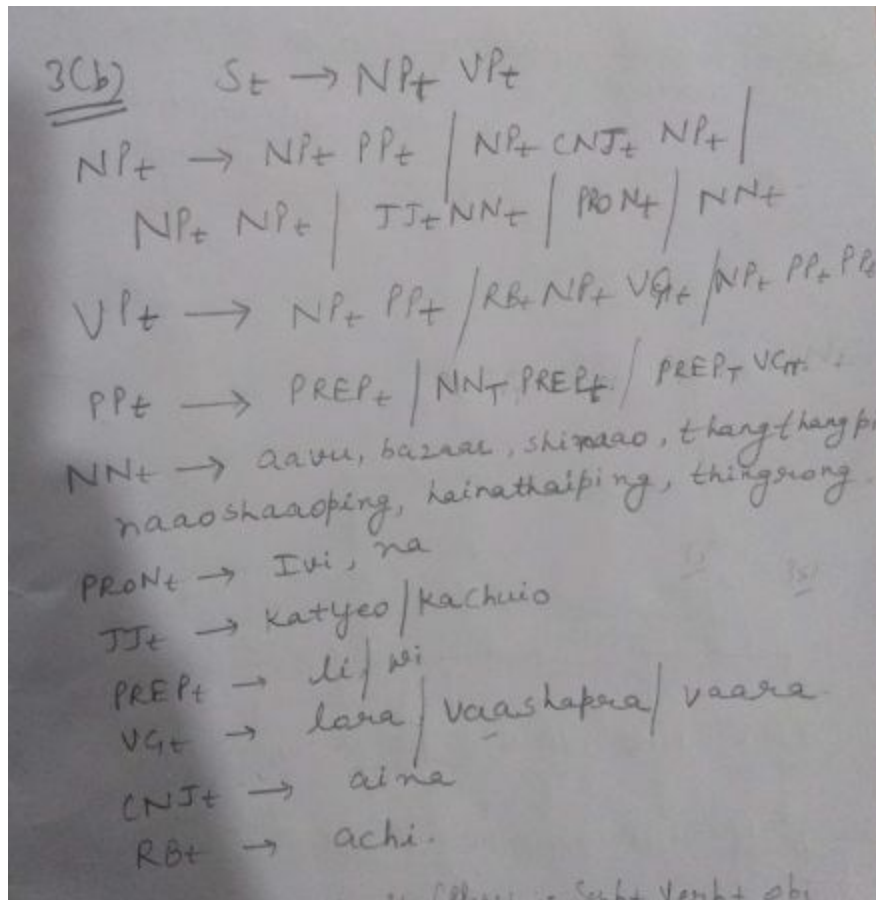 3(b) St → NPt VPt
NPt → NPt PPt / NPt CNJt NPt /
NPt NPt / JJt NNt / PRONt / NNt
VPt → NPt PPt / RBt NPt VGt / NPt PPt PPt
PPt → PREPt / NNT PREPt / PREPT VGT
NNt → aavu, bazaar, shimaao, thangthangpi
naaoshaaoping, hainathaiping, thingrong
PRONt → Ivi, na
JJt → Katyeo / Kachuio
PREPt → li / wi
VGt → lara / vaashapra / vaara
CNJt → aina
RBt → achi.